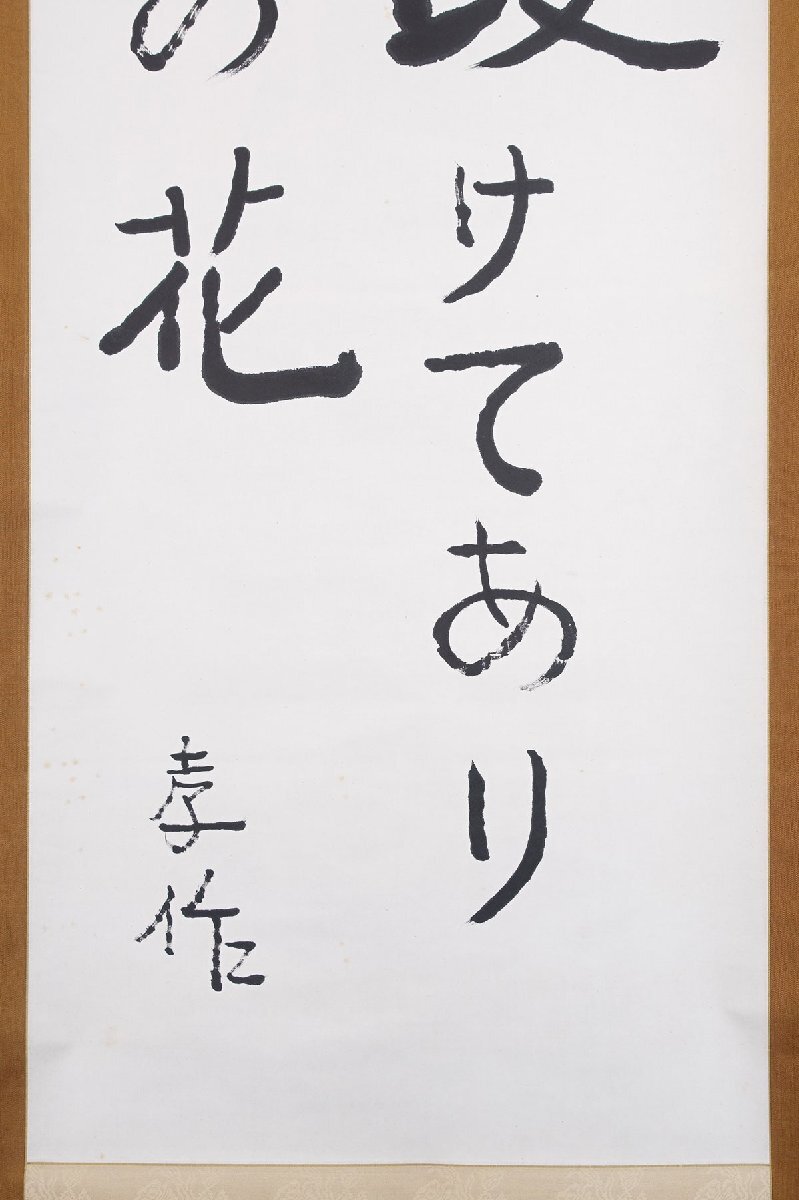 けてあり
の花
孝作